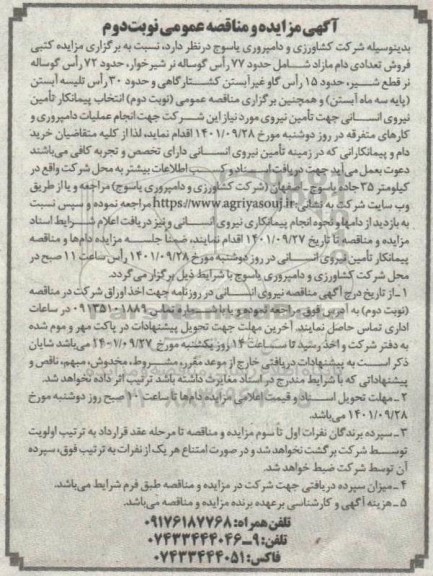 آگهی مزایده و مناقصه عمومی نوبت دوم
بدینوسیله شرکت کشاورزی و دامپروری یاسوج درنظر دارد، نسبت به برگزاری مزایده کتبی
فروش تعدادی دام مازاد شامل حدود ۷۷ رأس گوساله نر شیرخوار، حدود ۷۲ رأس گوساله
نر قطع شیر، حدود ۱۵ رأس گاو غیرآبستن کشتارگاهی و حدود ۳۰ رأس تلیسه آبستن
(پایه سه ماه آبستن) و همچنین برگزاری مناقصه عمومی (نوبت دوم) انتخاب پیمانکار تأمین
نیروی انسانی جهت تأمین نیروی مورد نیاز این شرکت جهت انجام عملیات دامپروری و
کارهای متفرقه در روز دوشنبه مورخ ۱۴۰۱/۰۹/۲۸ اقدام نماید، لذا از کلیه متقاضیان خرید
دام و پیمانکارانی که در زمینه تأمین نیروی انسانی دارای تخصص و تجربه کافی می‌باشند
دعوت بعمل می‌آید جهت دریافت اسناد و کسب اطلاعات بیشتر به محل شرکت واقع در
کیلومتر ۳۵ جاده یاسوج - اصفهان (شرکت کشاورزی و دامپروری یاسوج) مراجعه و یا از طریق
وب سایت شرکت به نشانی https://www.agriyasouj.ir مراجعه نموده و سپس نسبت
به بازدید از دامها و نحوه انجام پیمانکاری نیروی انسانی و نیز دریافت اعلام شرایط اسناد
مزایده و مناقصه تا تاریخ ۱۴۰۱/۰۹/۲۷ اقدام نمایند، ضمناً جلسه مزایده دام‌ها و مناقصه
پیمانکار تأمین نیروی انسانی در روز دوشنبه مورخ ۱۴۰۱/۰۹/۲۸ رأس ساعت ۱۱ صبح در
محل شرکت کشاورزی و دامپروری یاسوج با شرایط ذیل برگزار می‌گردد.
۱- از تاریخ درج آگهی مناقصه نیروی انسانی در روزنامه جهت اخذ اوراق شرکت در مناقصه
(نوبت دوم) به آدرس فوق مراجعه نموده و یا با شماره تلفن در ساعات
اداری تماس حاصل نمایند. آخرین مهلت جهت تحویل پیشنهادات در پاکت مهر و موم شده
به دفتر شرکت و اخذ رسید تا ساعت ۱۴ روز یکشنبه مورخ ۱۴۰۱/۰۹/۲۷ می‌باشد شایان
ذکر است به پیشنهادات دریافتی خارج از موعد مقرر، مشروط، مخدوش، مبهم، ناقص و
پیشنهاداتی که با شرایط مندرج در اسناد مغایرت داشته باشد ترتیب اثر داده نخواهد شد.
۲- مهلت تحویل اسناد و قیمت اعلامی مزایده دام‌ها تا ساعت ۱۰ صبح روز دوشنبه مورخ
۱۴۰۱/۰۹/۲۸ می‌باشد.
۳- سپرده برندگان نفرات اول تا سوم مزایده و مناقصه تا مرحله عقد قرارداد به ترتیب اولویت
توسط شرکت برگشت نخواهد شد و در صورت امتناع هر یک از نفرات به ترتیب فوق، سپرده
آن توسط شرکت ضبط خواهد شد.
۴- میزان سپرده دریافتی جهت شرکت در مزایده و مناقصه طبق فرم شرایط می‌باشد.
۵- هزینه آگهی و کارشناسی برعهده برنده مزایده و مناقصه می‌باشد.
تلفن همراه: ۰۹۱۷۶۱۸۷۷۶۸
تلفن: ۹-۰۷۴۳۳۴۴۴۰۴۶
فاکس: ۰۷۴۳۳۴۴۴۰۵۱